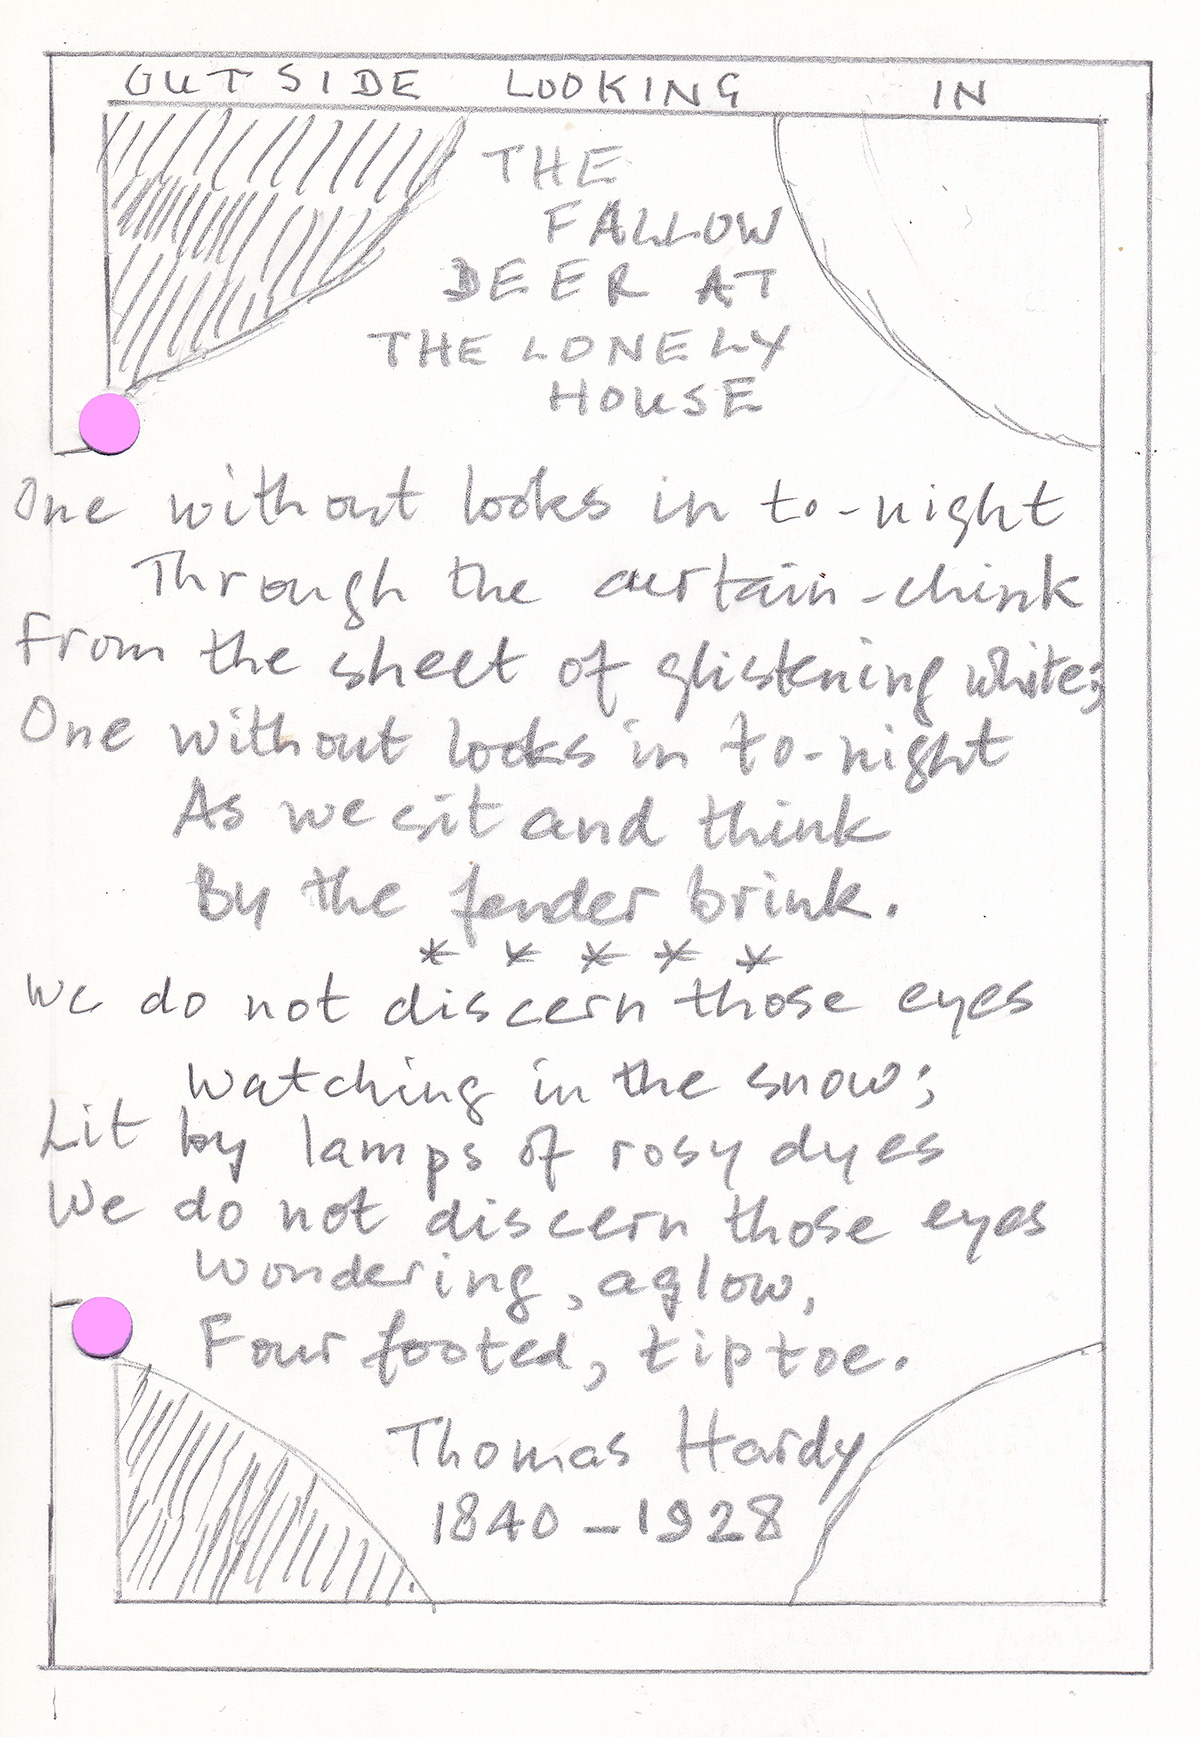 OUTSIDE LOOKING IN
THE
FALLOW
DEER AT
THE LONELY
HOUSE
One without looks in to-night
Through the curtain-chink
From the sheet of glistening white;
One without looks in to-night
As we sit and think
By the fender brink.
* * * * *
We do not discern those eyes
Watching in the snow;
Lit by lamps of rosy dyes
We do not discern those eyes
Wondering, aglow,
Four footed, tiptoe.
Thomas Hardy
1840-1928